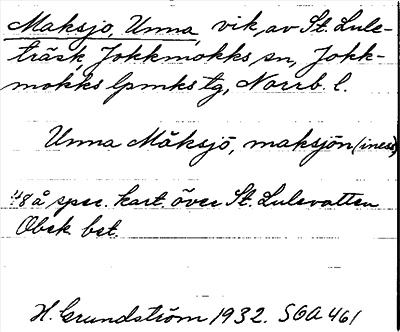 Maksjo, Unna, vik, av St. Lule-
träsk, Jokkmokks sn, Jokk-
mokks lpmks tg, Norrb. l.
Unna Måksjō, maksjōn (iness)
48 å spec. kart. över St. Lulevatten
Obek bet.
H. Grundström 1932. SOA 461